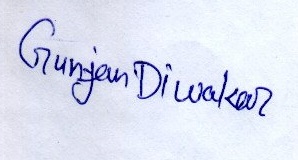 Gunjan Diwakar